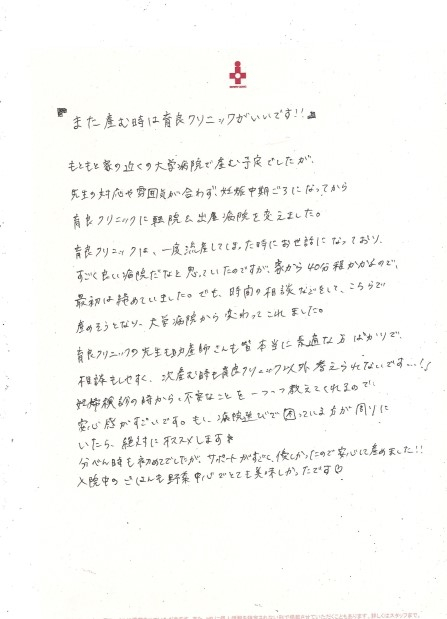 "また産む時は育良クリニックがいいです!!"
もともと家の近くの大学病院で産む予定でしたが、
先生の対応や雰囲気が合わず、妊娠中期ごろになってから
育良クリニックに転院し出産病院を変えました。
育良クリニックは、一度流産してしまった時にお世話になっており、
すごく良い病院だなと思っていたのですが、家から40分程かかるので、
最初は諦めていました。でも、時間の相談などをして、こちらで
産めそうとなり、大学病院から変わってこれました。
育良クリニックの先生も助産師さんも皆本当に素適な方ばかりで、
相談もしやすく、次産む時も育良クリニック以外考えられないです…!!
妊婦検診の時から、不安なことを一つ一つ教えてくれるので
安心感がすごいです。もし、病院選びで困っている方が周りに
いたら、絶対にオススメします
分べん時も初めてでしたが、サポートがすごく、優しかったので安心して産めました!!
入院中のごはんも野菜中心でとても美味しかったです♡